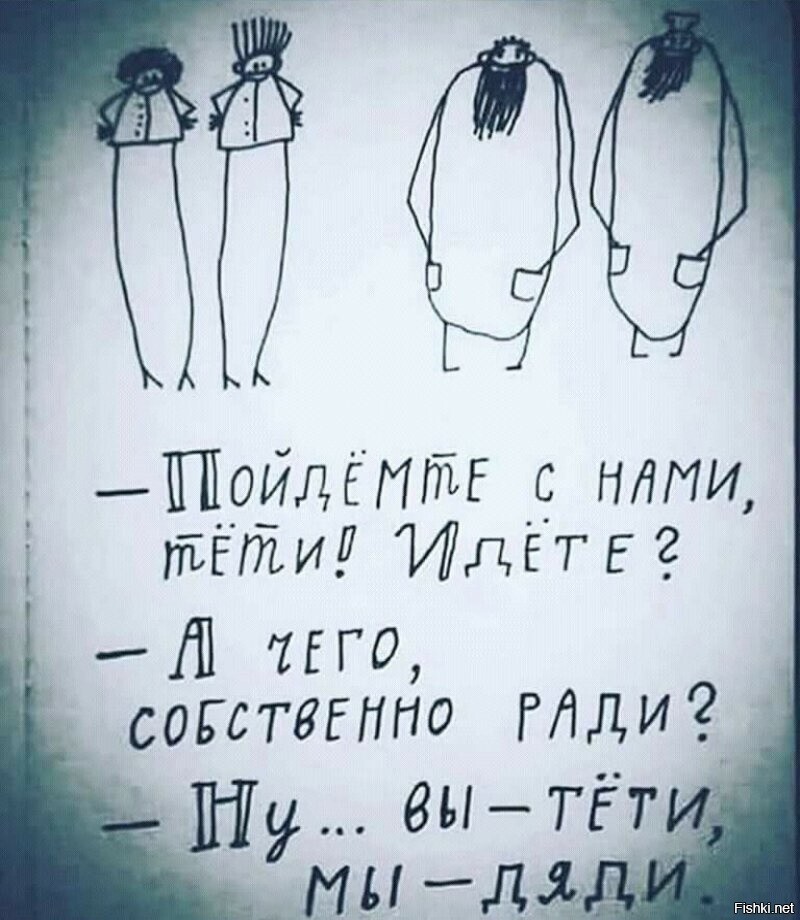 — Пойдёмте с нами,
тёти! Идёте?
— А чего,
собственно ради?
— Ну... вы — тёти,
мы — дяди.
Fishki.net